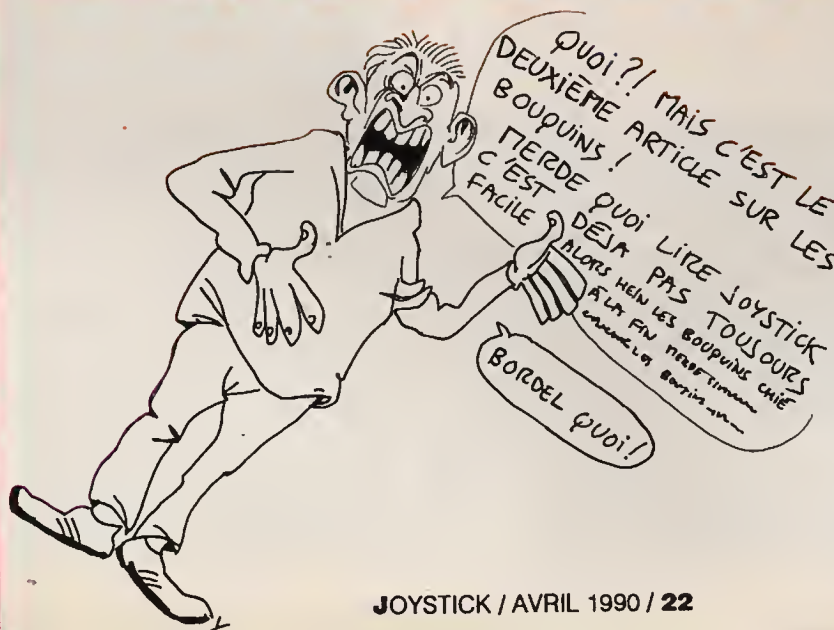 QUOI?! MAIS C'EST LE
DEUXIÈME ARTICLE SUR LES
BOUQUINS!
MERDE QUOI LIRE JOYSTICK
C'EST DÉJA PAS TOUJOURS
FACILE ALORS HEIN LES BOUQUINS CHIÉ
À LA FIN MERDE
BORDEL QUOI!
JOYSTICK / AVRIL 1990 / 22